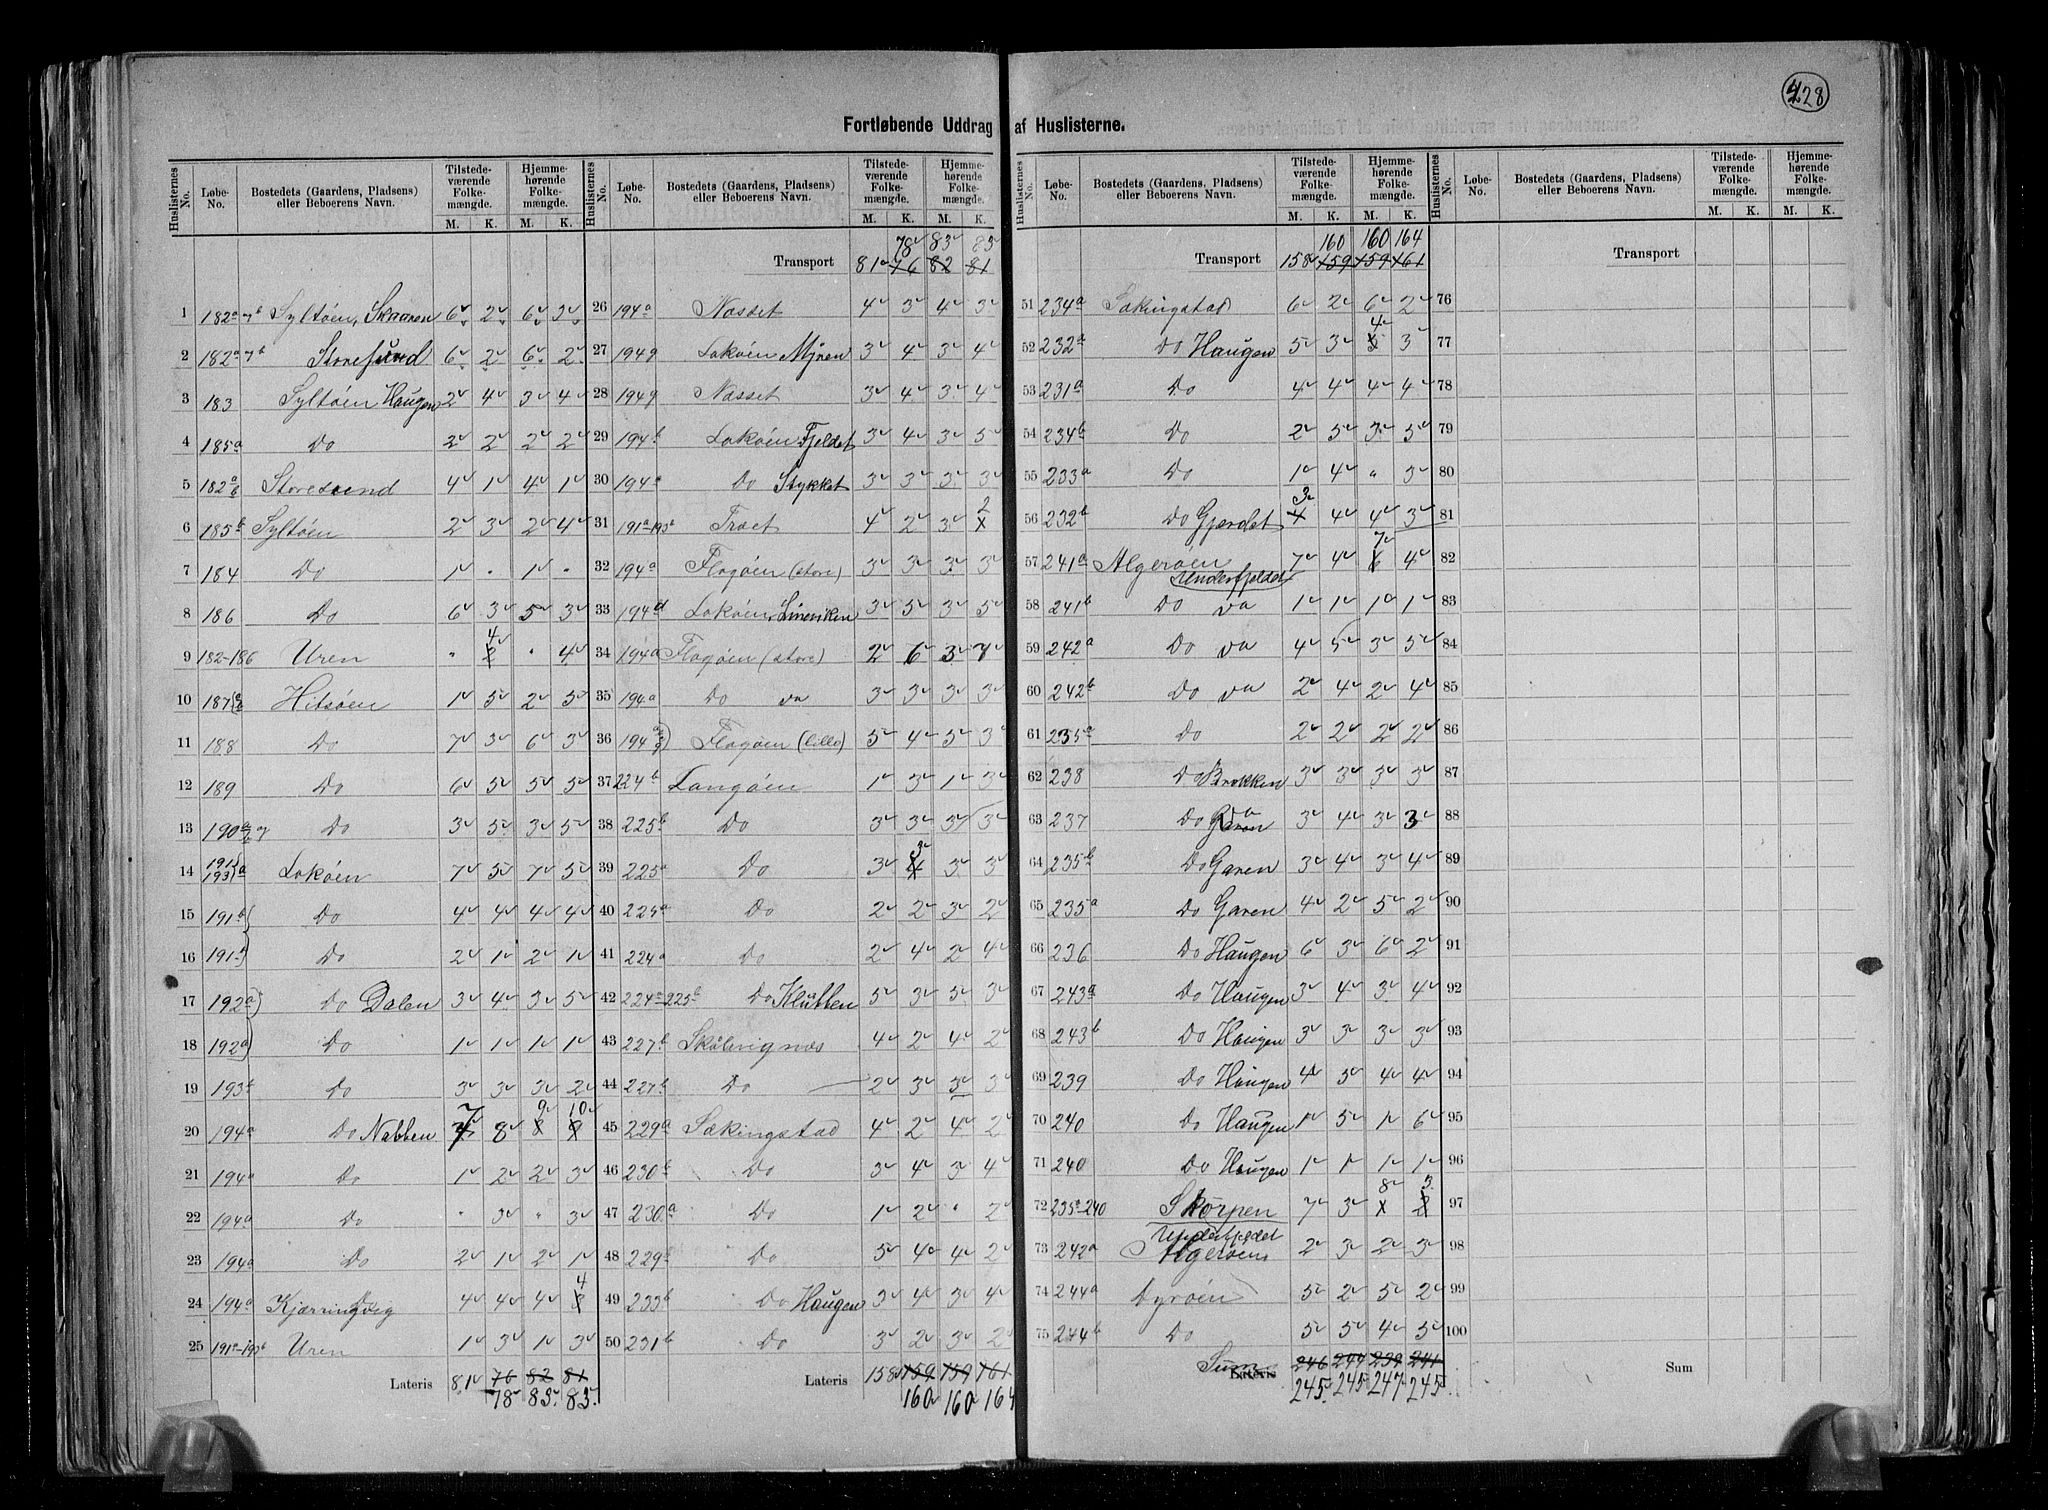 228
Fortløbende Uddrag af Huslisterne.
Huslisternes No. Løbe-No. Bostedets (Gaardens, Pladsens) eller Beboerens Navn. Tilstedeværende Folkemængde. M. K. Hjemmehørende Folkemængde. M. K.
1 182a 7b Syltøen, Skaaren 6 2 6 3
2 182a 7b Storesund 6 2 6 2
3 183 Syltøen Haugen 2 4 3 4
4 185a Do 2 2 2 2
5 182a/b Storesund 4 1 4 1
6 185b Syltøen 2 3 2 4
7 184 Do 1 " 1 "
8 186 Do 6 3 5 3
9 182-186 Uren " 4 " 4
10 187 Hitsøen 1 5 2 5
11 188 Do 7 3 6 3
12 189 Do 6 5 5 5
13 190 Do 3 5 3 5
14 191 193 a Lokøen 7 5 7 5
15 191b Do 4 4 4 4
16 191b Do 2 1 2 1
17 192a Do Dalen 3 4 3 5
18 192a Do 1 1 1 1
19 193b Do 3 3 3 2
20 194a Do Nabben 7 8 9 10
21 194a Do 1 2 2 3
22 194a Do " 3 " 3
23 194a Do 2 1 2 1
24 194a Kjærringvig 4 4 4 4
25 191a-193b Uren 1 3 1 3
Lateris 81 76 82 81
78 83 83
Huslisternes No. Løbe-No. Bostedets (Gaardens, Pladsens) eller Beboerens Navn. Tilstedeværende Folkemængde. M. K. Hjemmehørende Folkemængde. M. K.
78 83 83
Transport 81 76 82 81
26 194a Næsset 4 3 4 3
27 1949 Lokøen Myren 3 4 3 4
28 1949 Næsset 3 4 3 4
29 194b Lokøen Fjeldet 3 4 3 5
30 194a Do Stykket 3 3 3 3
31 191a-193b Træet 4 2 3 2
32 194a Flogøen (store) 3 3 3 3
33 194d Lokøen, 3 5 3 5
34 194a Flogøen (store) 2 6 3 7
35 194a Do 3 3 3 3
36 194 Flogøen (lille) 5 4 5 3
37 224b Langøen 1 3 1 3
38 225b Do 3 3 3 3
39 225a Do 3 3 3 3
40 225a Do 2 2 3 2
41 224a Do 2 4 2 4
42 224a-225b Do Klubben 5 3 5 3
43 227b Skålvignæs 4 2 4 2
44 227b Do 2 3 3 3
45 229a Sækingstad 4 2 4 2
46 230b Do 3 4 3 4
47 230a Do 1 2 " 2
48 229b Do 5 4 4 2
49 233b Do Haugen 3 4 3 4
50 231b Do 3 2 3 2
Lateris 158 159 159 161
160 160 164
Huslisternes No. Løbe-No. Bostedets (Gaardens, Pladsens) eller Beboerens Navn. Tilstedeværende Folkemængde. M. K. Hjemmehørende Folkemængde. M. K.
160 160 164
Transport 158 159 159 161
51 234a Sækingstad 6 2 6 2
52 232a Do Haugen 5 3 4 3
53 231a Do 4 4 4 4
54 234b Do 2 5 3 5
55 233a Do 1 4 " 3
56 232b Do Gjærdet 3 4 4 3
57 241a Algerøen 7 4 7 4
Underfjeldet
58 241b Do 1 1 1 1
59 242a Do 4 5 3 5
60 242b Do 2 4 2 4
61 235a Do 2 2 2 2
62 238 Do Brekken 3 3 3 3
63 237 Do 3 4 3 3
64 235b Do Garen 3 4 3 4
65 235a Do Garen 4 2 5 2
66 236 Do Haugen 6 3 6 2
67 243a Do Haugen 3 4 3 4
68 243b Do Haugen 3 3 3 3
69 239 Do Haugen 4 5 4 4
70 240 Do Haugen 1 5 1 6
71 240 Do Haugen 1 1 1 1
72 235a-240 Skorpen 7 3 8 3
Underfjeldet
73 242a Algerøen 2 3 2 3
74 244a Dyrøen 5 2 5 2
75 244b Do 5 5 4 5
Sum Lateris 246 244 239 241
245 245 247 245
Huslisternes No. Løbe-No. Bostedets (Gaardens, Pladsens) eller Beboerens Navn. Tilstedeværende Folkemængde. M. K. Hjemmehørende Folkemængde. M. K.
Transport
76
77
78
79
80
81
82
83
84
85
86
87
88
89
90
91
92
93
94
95
96
97
98
99
100
Sum